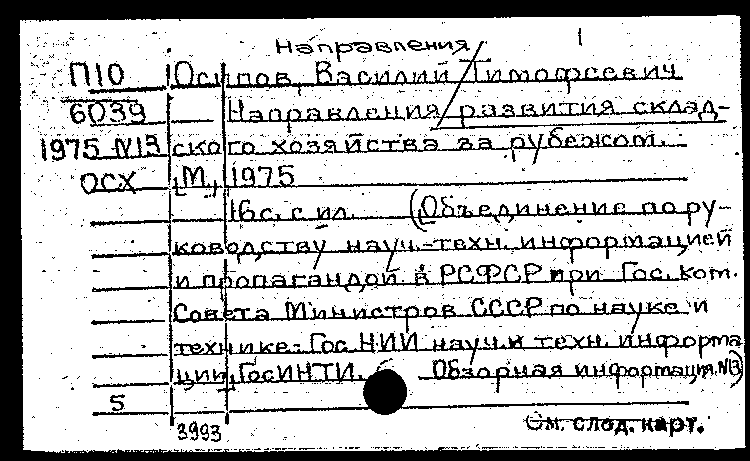 Направления 1
П10 Осипов, Василий Тимофеевич
6039 Направления развития склад-
1975 №13 ского хозяйства за рубежом.
ОСХ М., 1975
16с. с ил. (Объединение по ру-
ководству науч.-техн. информацией
и пропагандой в РСФСР при Гос. ком.
Совета Министров СССР по науке и
технике. Гос НИИ науч. и техн. информа
ции, ГосИНТИ. Обзорная информация. №13)
5
См. след. карт.
3993